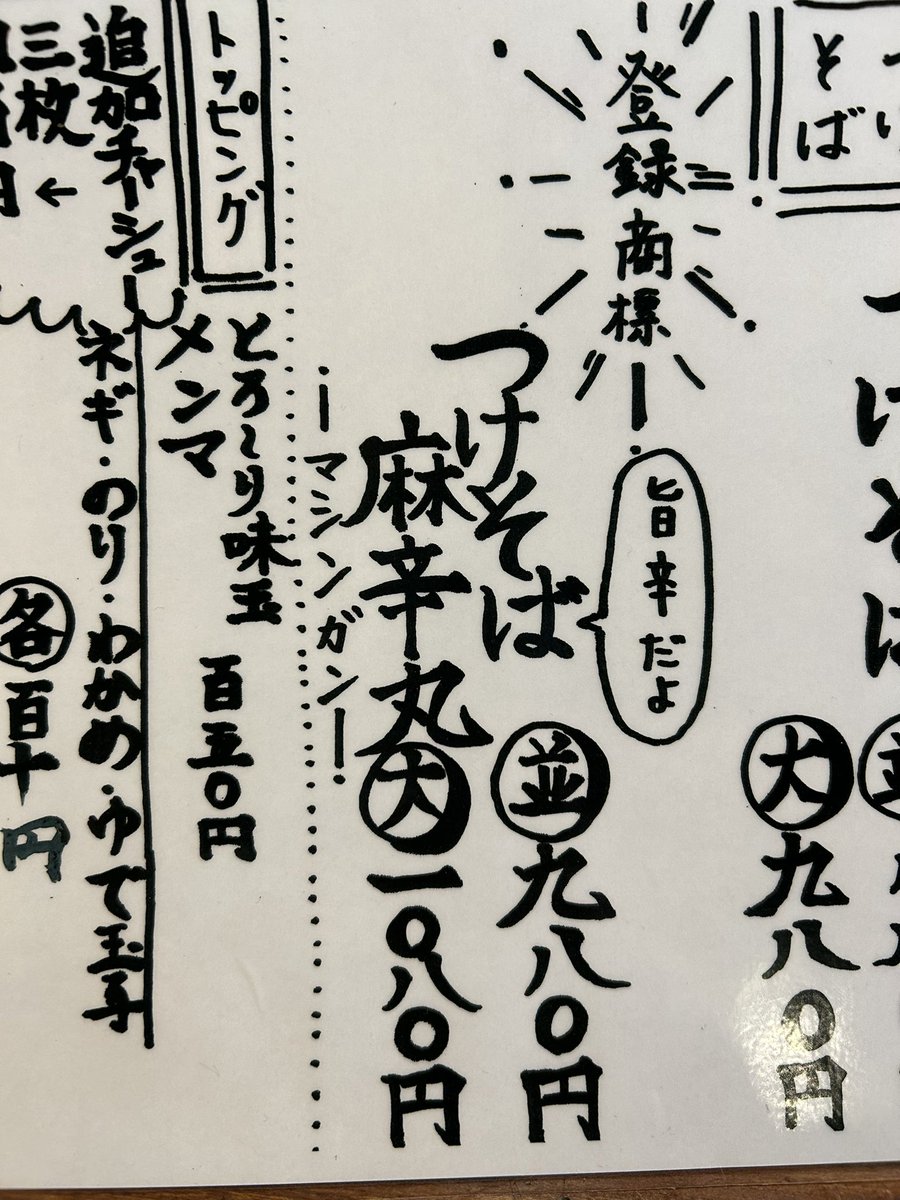 そば
つけそば
大 九八〇円
登録商標
旨辛だよ
つけそば
麻辛丸
ーマシンガンー
並 九八〇円
大 一〇八〇円
トッピング
とろ〜り味玉
メンマ
百五〇円
追加チャーシュー
三枚
円
ネギ・のり・わかめ・ゆで玉子
各百十円